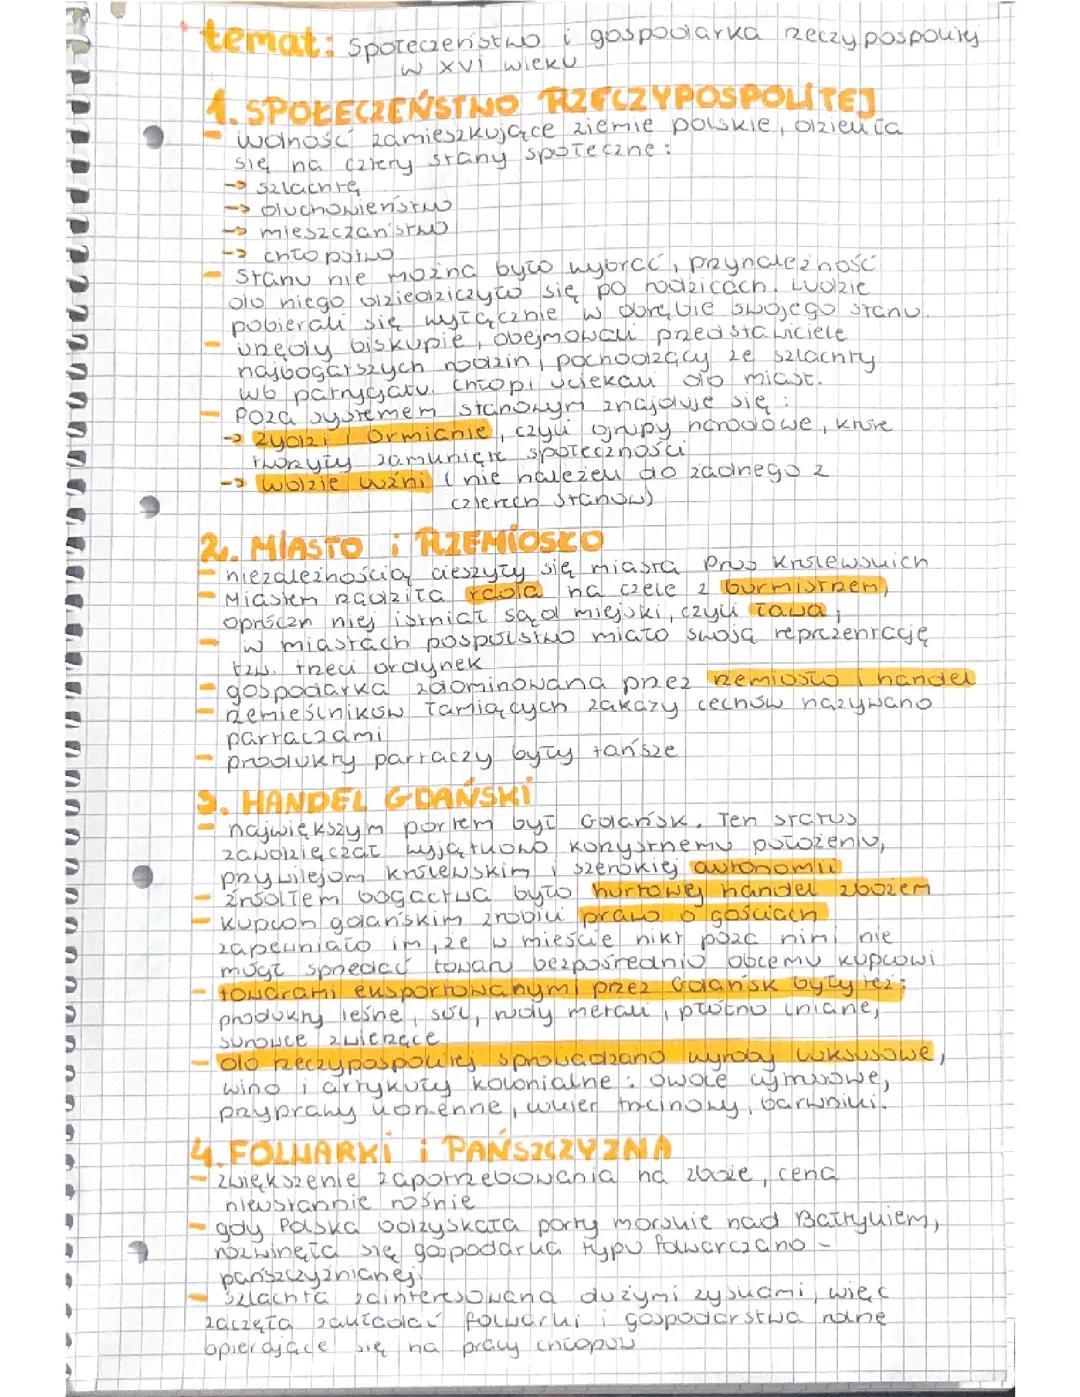 temat: społeczeństwo i gospodarka rzeczypospolitej
w XVI wieku
1. SPOŁECZEŃSTWO RZECZYPOSPOLITEJ
- wolność zamieszkujące ziemie polskie, dzieliła
się na cztery stany społeczne:
→ szlachtę
→ duchowieństwo
→ mieszczaństwo
→ chłopstwo
- Stanu nie można było wybrać, przynależność
do niego dziedziczyło się po rodzicach. Ludzie
pobierali się wyłącznie w obrębie swojego stanu.
- urzędy biskupie, obejmowali przedstawiciele
najbogatszych rodzin, pochodzący ze szlachty
lub patrycjatu. Chłopi uciekali do miast.
- Poza systemem stanowym znajduje się:
→ żydzi i Ormianie, czyli grupy narodowe, które
tworzyły zamknięte społeczności
→ ludzie luźni (nie należeli do żadnego z
czterech stanów)
2. MIASTO i RZEMIOSŁO
- niezależnością cieszyły się miasta Prus Królewskich
- Miastem rządziła rada na czele z burmistrzem,
oprócz niej istniał sąd miejski, czyli ława,
- w miastach pospólstwo miało swoją reprezentację
tzw. trzeci ordynek
- gospodarka zdominowana przez rzemiosło i handel
- rzemieślników łamiących zakazy cechów nazywano
partaczami
- produkty partaczy były tańsze
3. HANDEL GDAŃSKI
- największym portem był Gdańsk. Ten status
zawdzięczał wyjątkowo korzystnemu położeniu,
przywilejom królewskim i szerokiej autonomii
- źródłem bogactwa było hurtowej handel zbożem
- kupcom gdańskim zrobili prawo o gościach
zapewniało im, że w mieście nikt poza nimi nie
mógł sprzedać towaru bezpośrednio obcemu kupcowi
- towarami eksportowanymi przez Gdańsk były też:
produkty leśne, sól, rudy metali, płótno lniane,
surowce zwierzęce
- do rzeczypospolitej sprowadzano wyroby luksusowe,
wino i artykuły kolonialne: owoce cytrusowe,
przyprawy korzenne, cukier trzcinowy, barwniki.
4. FOLWARKI i PAŃSZCZYZNA
- zwiększenie zapotrzebowania na zboże, cena
nieustannie rośnie
- gdy Polska odzyskała porty morskie nad Bałtykiem,
rozwinęła się gospodarka typu folwarczano -
pańszczyźnianej.
- szlachta zainteresowana dużymi zyskami, więc
zaczęła zakładać folwarki i gospodarstwa rolne
opierające się na pracy chłopów